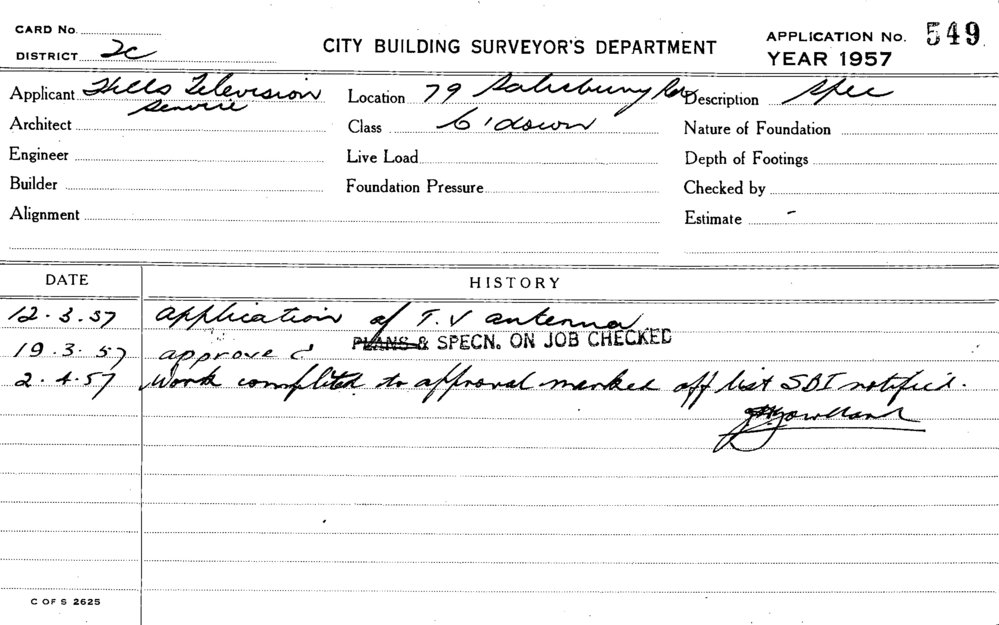 CARD No.
DISTRICT 2c
CITY BUILDING SURVEYOR'S DEPARTMENT
APPLICATION No. 549
YEAR 1957
Applicant Hills Television
Service
Location 79 Salisbury Rd
Description Spec
Architect
Class C'down
Nature of Foundation
Engineer
Live Load
Depth of Footings
Builder
Foundation Pressure
Checked by
Alignment
Estimate -
DATE HISTORY
12.3.57 application of T.V antenna
PLANS & SPECN. ON JOB CHECKED
19.3.57 approved
2.4.57 Work completed to approval marked off list SBI notified.
C OF S 2625